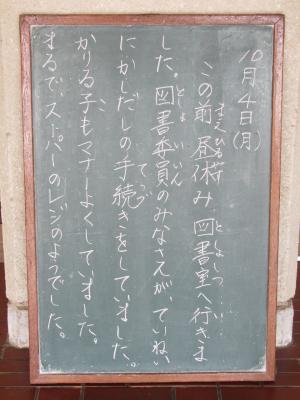 10月4日(月)
この前、昼休み、図書室へ行きま
した。図書委員のみなさんが、ていねい
にかしだしの手続きをしていました。
かりる子もマナーよくしていました。
まるで、スーパーのレジのようでした。